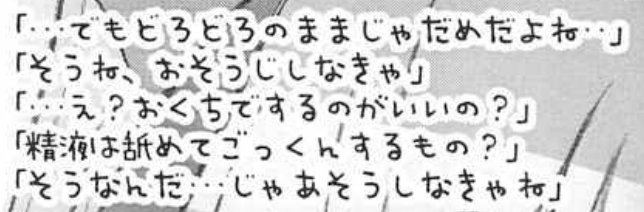 「…でもどろどろのままじゃだめだよね‥」
「そうね、おそうじしなきゃ」
「…え？おくちでするのがいいの？」
「精液は舐めてごっくんするもの？」
「そうなんだ…じゃあそうしなきゃね」